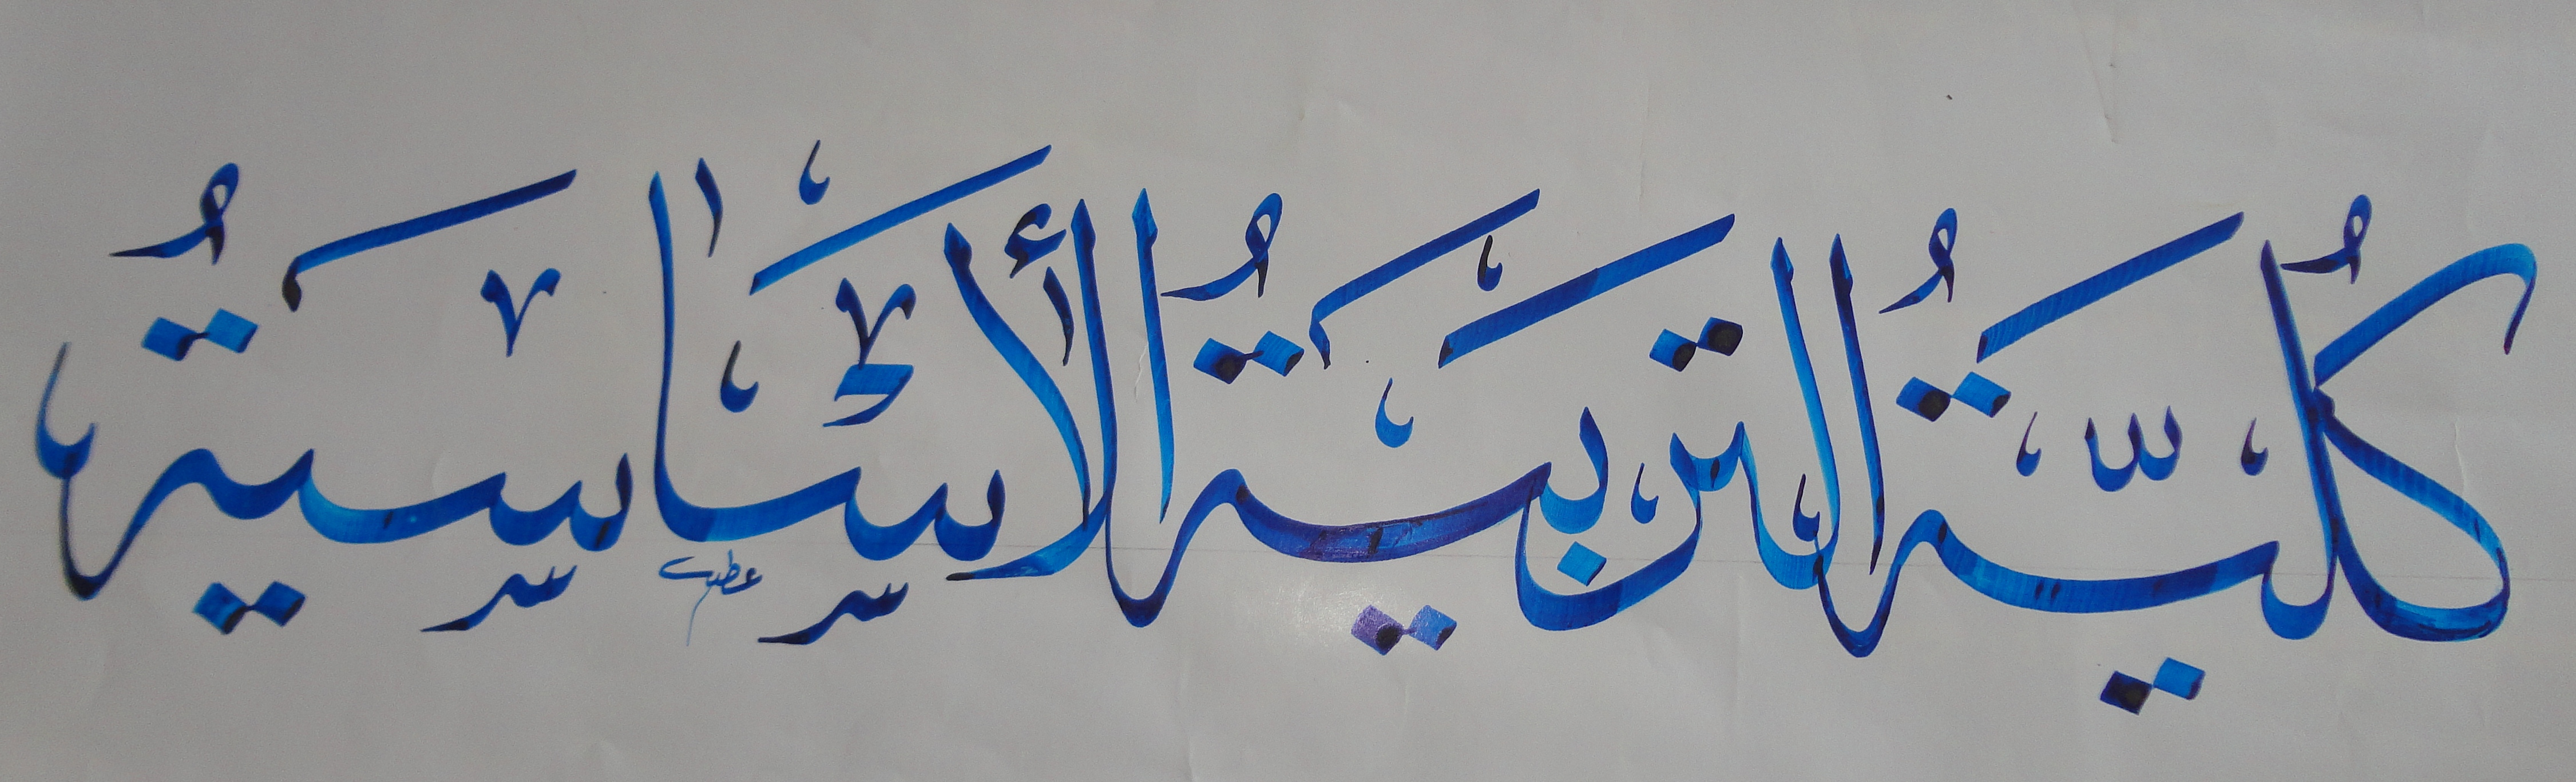 كُليَّةُ التربيَةُ الأسَاسيةُ
عطية